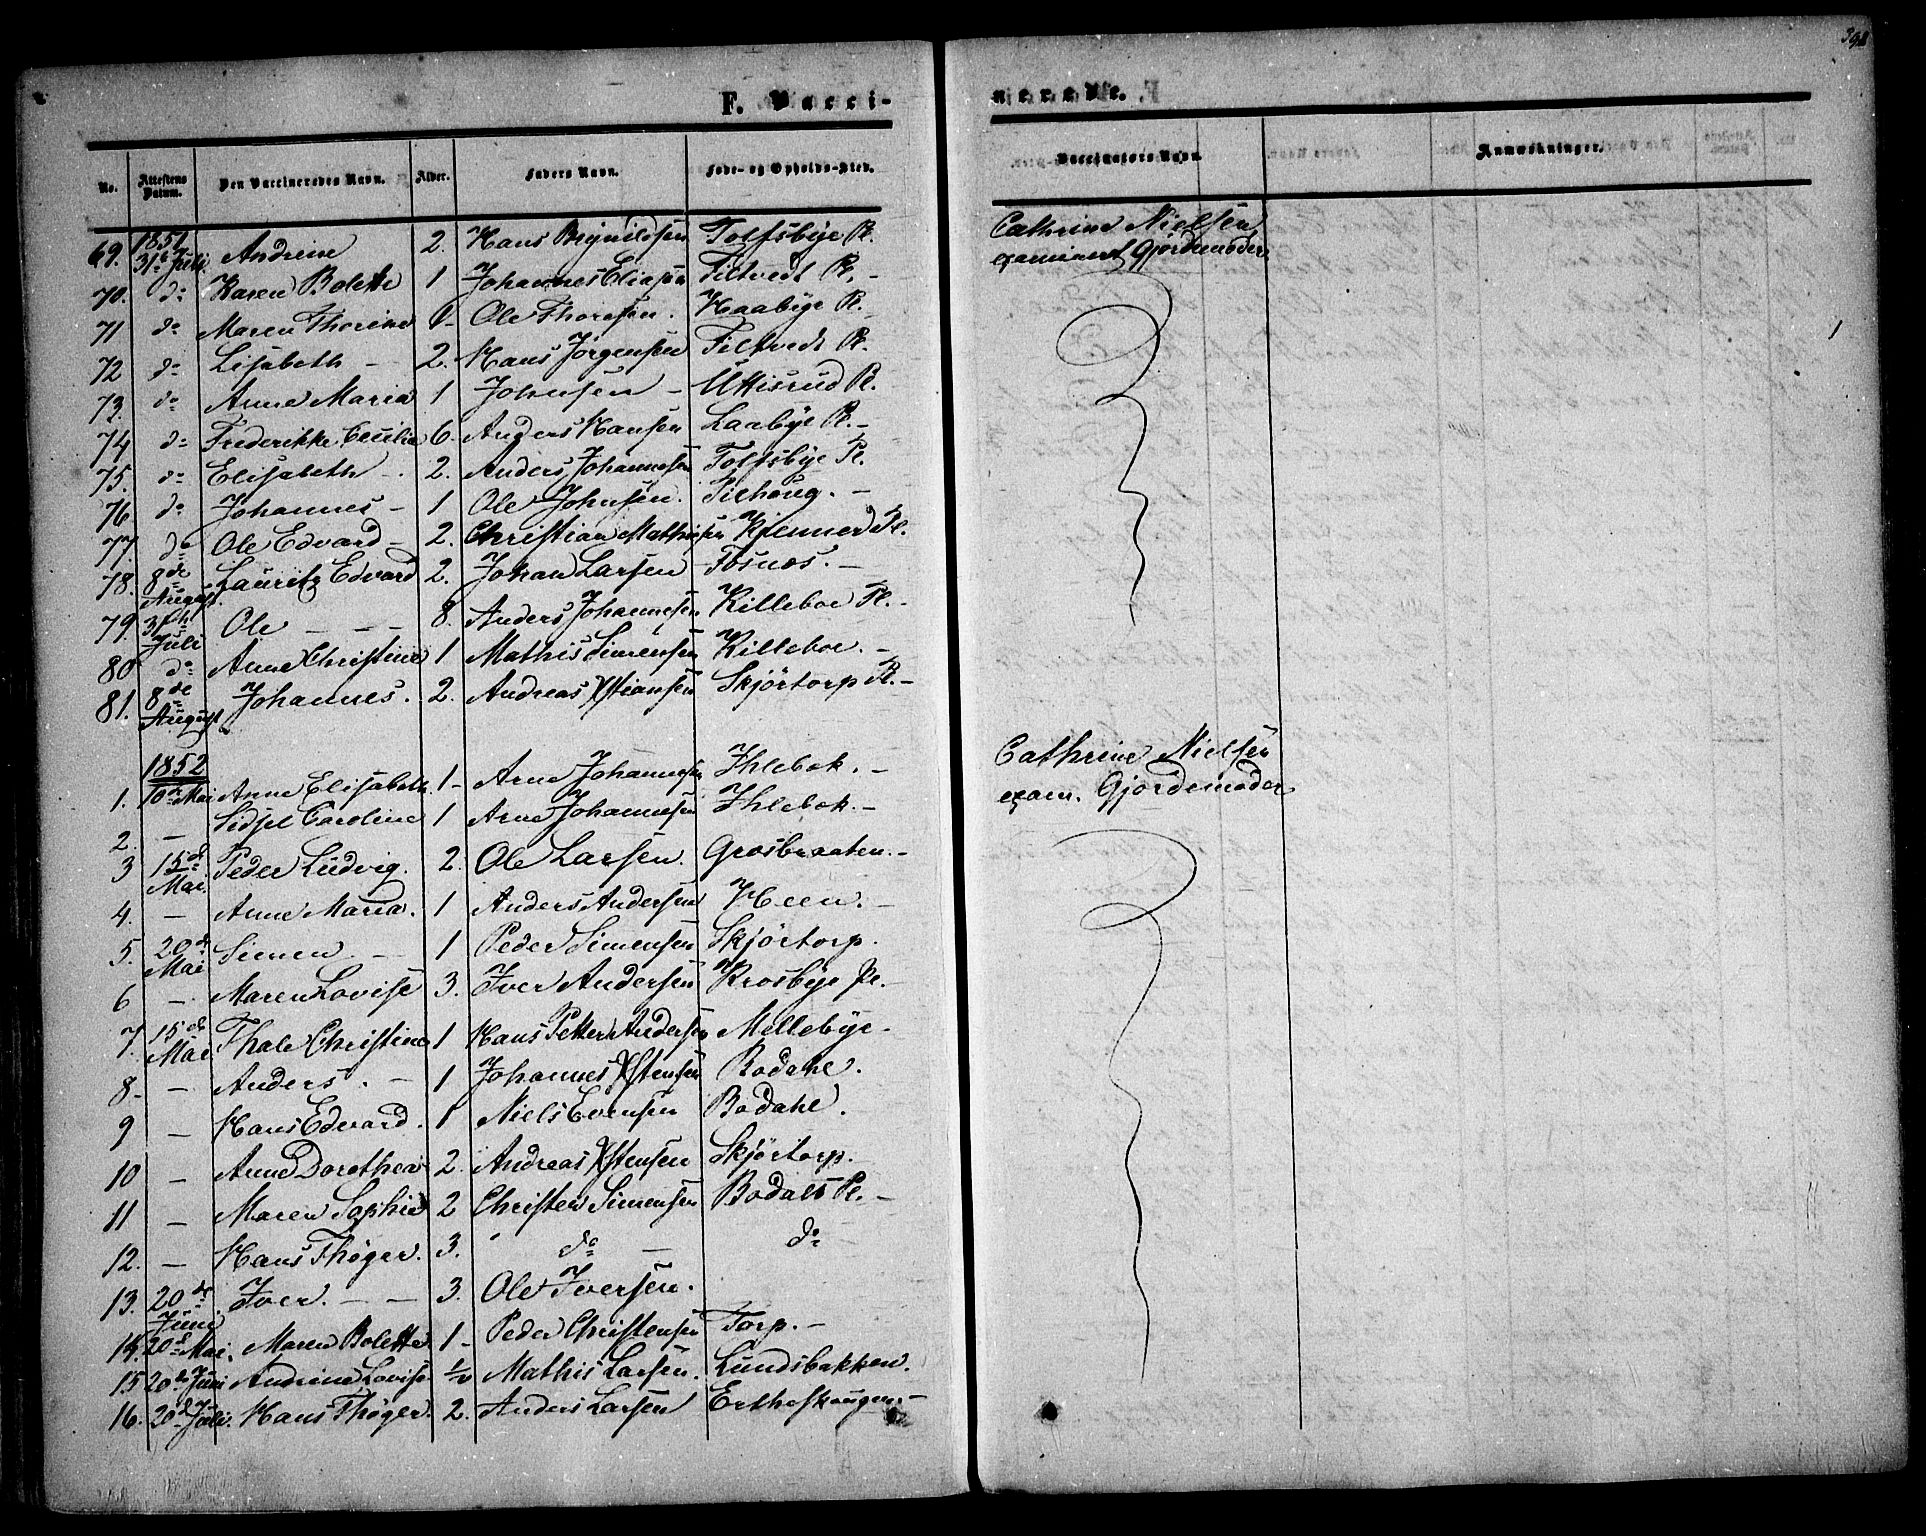 398
F. Vacci-
nerede.
No.
Attestens Datum.
Den Vaccineredes Navn.
Alder.
Faders Navn.
Føde- og Opholds-Sted.
Vaccinators Navn.
Anmærkninger.
1851
69. 31te Juli Andreine 2. Hans Brynildsen Tolfsbye Pl.
Cathrine Nielsen
examineret Gjordemoder
70. do Karen Bolette 1 Johannes Eliasen Filtvedt Pl. -
71 do Maren Thorine Ole Thoresen. Haabye Pl. -
72 do Lisabeth - 2. Hans Jørgensen Filtvedt Pl.
73. do Anne Maria 1 Johnsen - Uttisrud Pl.
74 do Frederikke Cecilie 6. Anders Hansen Laabye Pl. -
75. do Elisabeth - 2. Anders Johannesen Tolfsbye Pl.
76 do Johannes - 1 Ole Johnsen. Pilhoug. -
77. do Ole Edvard - 2. Christian Mathisen Kjenner Pl.
78. 8de August. Lauritz Edvard 2. Johan Larsen Fosnæs. -
79. 31te Juli Ole - - - 8. Anders Johannesen Killeboe Pl. -
80 do Anne Christine 1 Mathis Simensen Killeboe. -
81. 8de August Johannes. 2. Andreas Xstiansen Skjörtorp Pl. -
1852
1. 10de Mai Anne Elisabeth 1 - Arne Johannesen Ihlebek. -
Cathrine Nielsen
exam. Gjördemoder
2. - Sidsel Caroline 1 Arne Johannesen Ihlebek. -
3 15de Mai. Peder Ludvig. 2. Ole Larsen. Grosbraaten. -
4. - Anne Maria. 1 Anders Andersen Heen. -
5. 20de Mai Simen. - 1 Peder Simensen Skjörtorp.
6 - Maren Lovise 3. Iver Andersen Krosbye Pl. -
7. 15de Mai Thale Christine 1 Hans Petter Andersen Mellebye -
8. - Anders. - 1 Johannes Xstensen Bodahl.
9 - Hans Edvard. 1 Niels Evensen Bodahl.
10 - Anne Dorothea 2. Andreas Xstensen Skjörtorp.
11 - Maren Sophie 2 Christen Simensen Bodals Pl. -
12. - Hans Thøger. 3. do - do
13. 20de Juni Iver. - - 3. Ole Iversen.
14. 20de Mai. Maren Bolette 1 - Peder Christensen Torp. -
15 20de Juni Andrine Lovise 1/2 Mathis Larsen. Lundsbakken.
16. 20de Juli. Hans Thøger. 2. Anders Larsen